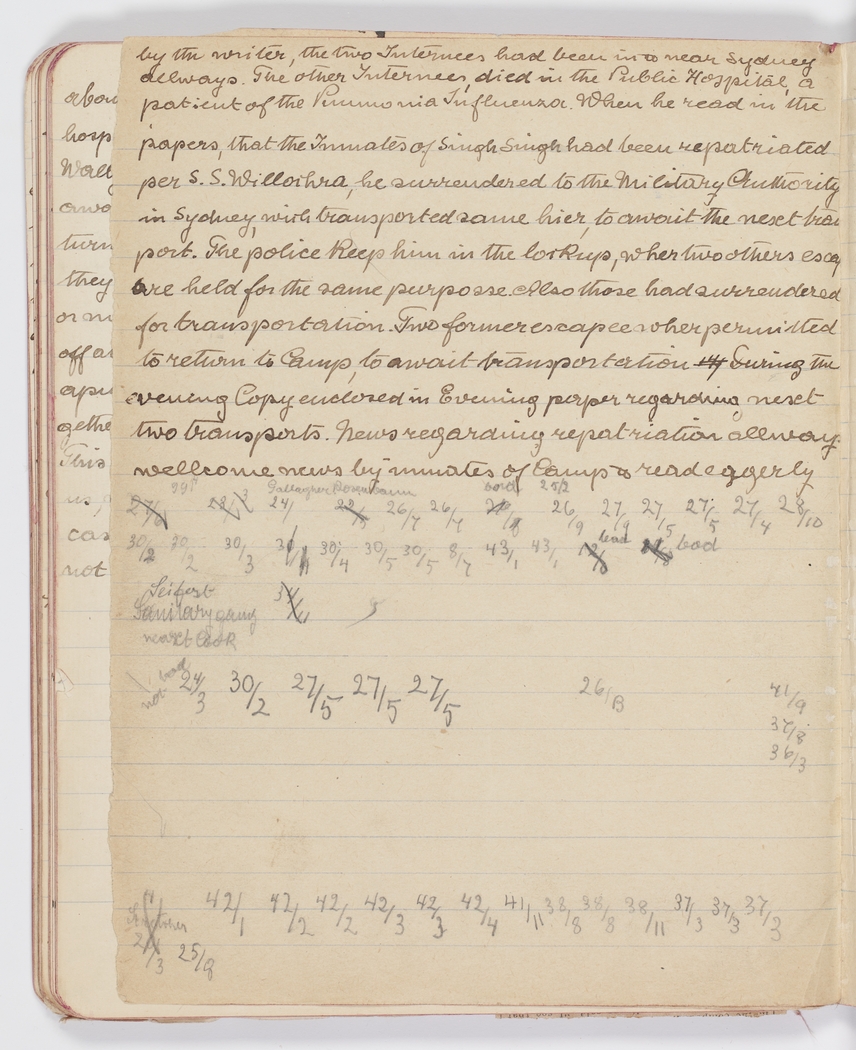 by the writer, the two Internees had been in o near Sydney
allways. The other Internees, died in the Public Hospital, a
patient of the Pnmmonia Influenza. When he read in the
papers, that the Inmates of Singh Singh had been repatriated
per S.S. Willochra, he surrendered to the Military Authority
in Sydney, wich transported same hier, to await the next tran
port. The police Keep him in the lockup, wher two others escap
are held for the same purposse. Also those had surrendered
for transportation. Two former escapees wher permitted
to return to Camp, to await transportation During the
evening Copy enclosed in Evening paper regarding next
two transports. News regarding repatriation allway
wellcome news by inmates of Camp & read eggerly
Gallagher Rosenbaum bad 25/2
24/ 26/7 26/7 26/9 27/9 27/5 27/5 27/4 28/10
30/2 30/2 30/3 30/4 30/5 30/5 8/7 43/1 43/1 bad bad
Seifert
Sanitary gang
next Cook
not bad
24/3 30/2 27/5 27/5 27/5 26/B 41/9
37/8
36/3
42/1 42/2 42/2 42/3 42/3 42/4 41/11 38/8 38/8 38/11 37/3 37/3 37/3
25/8